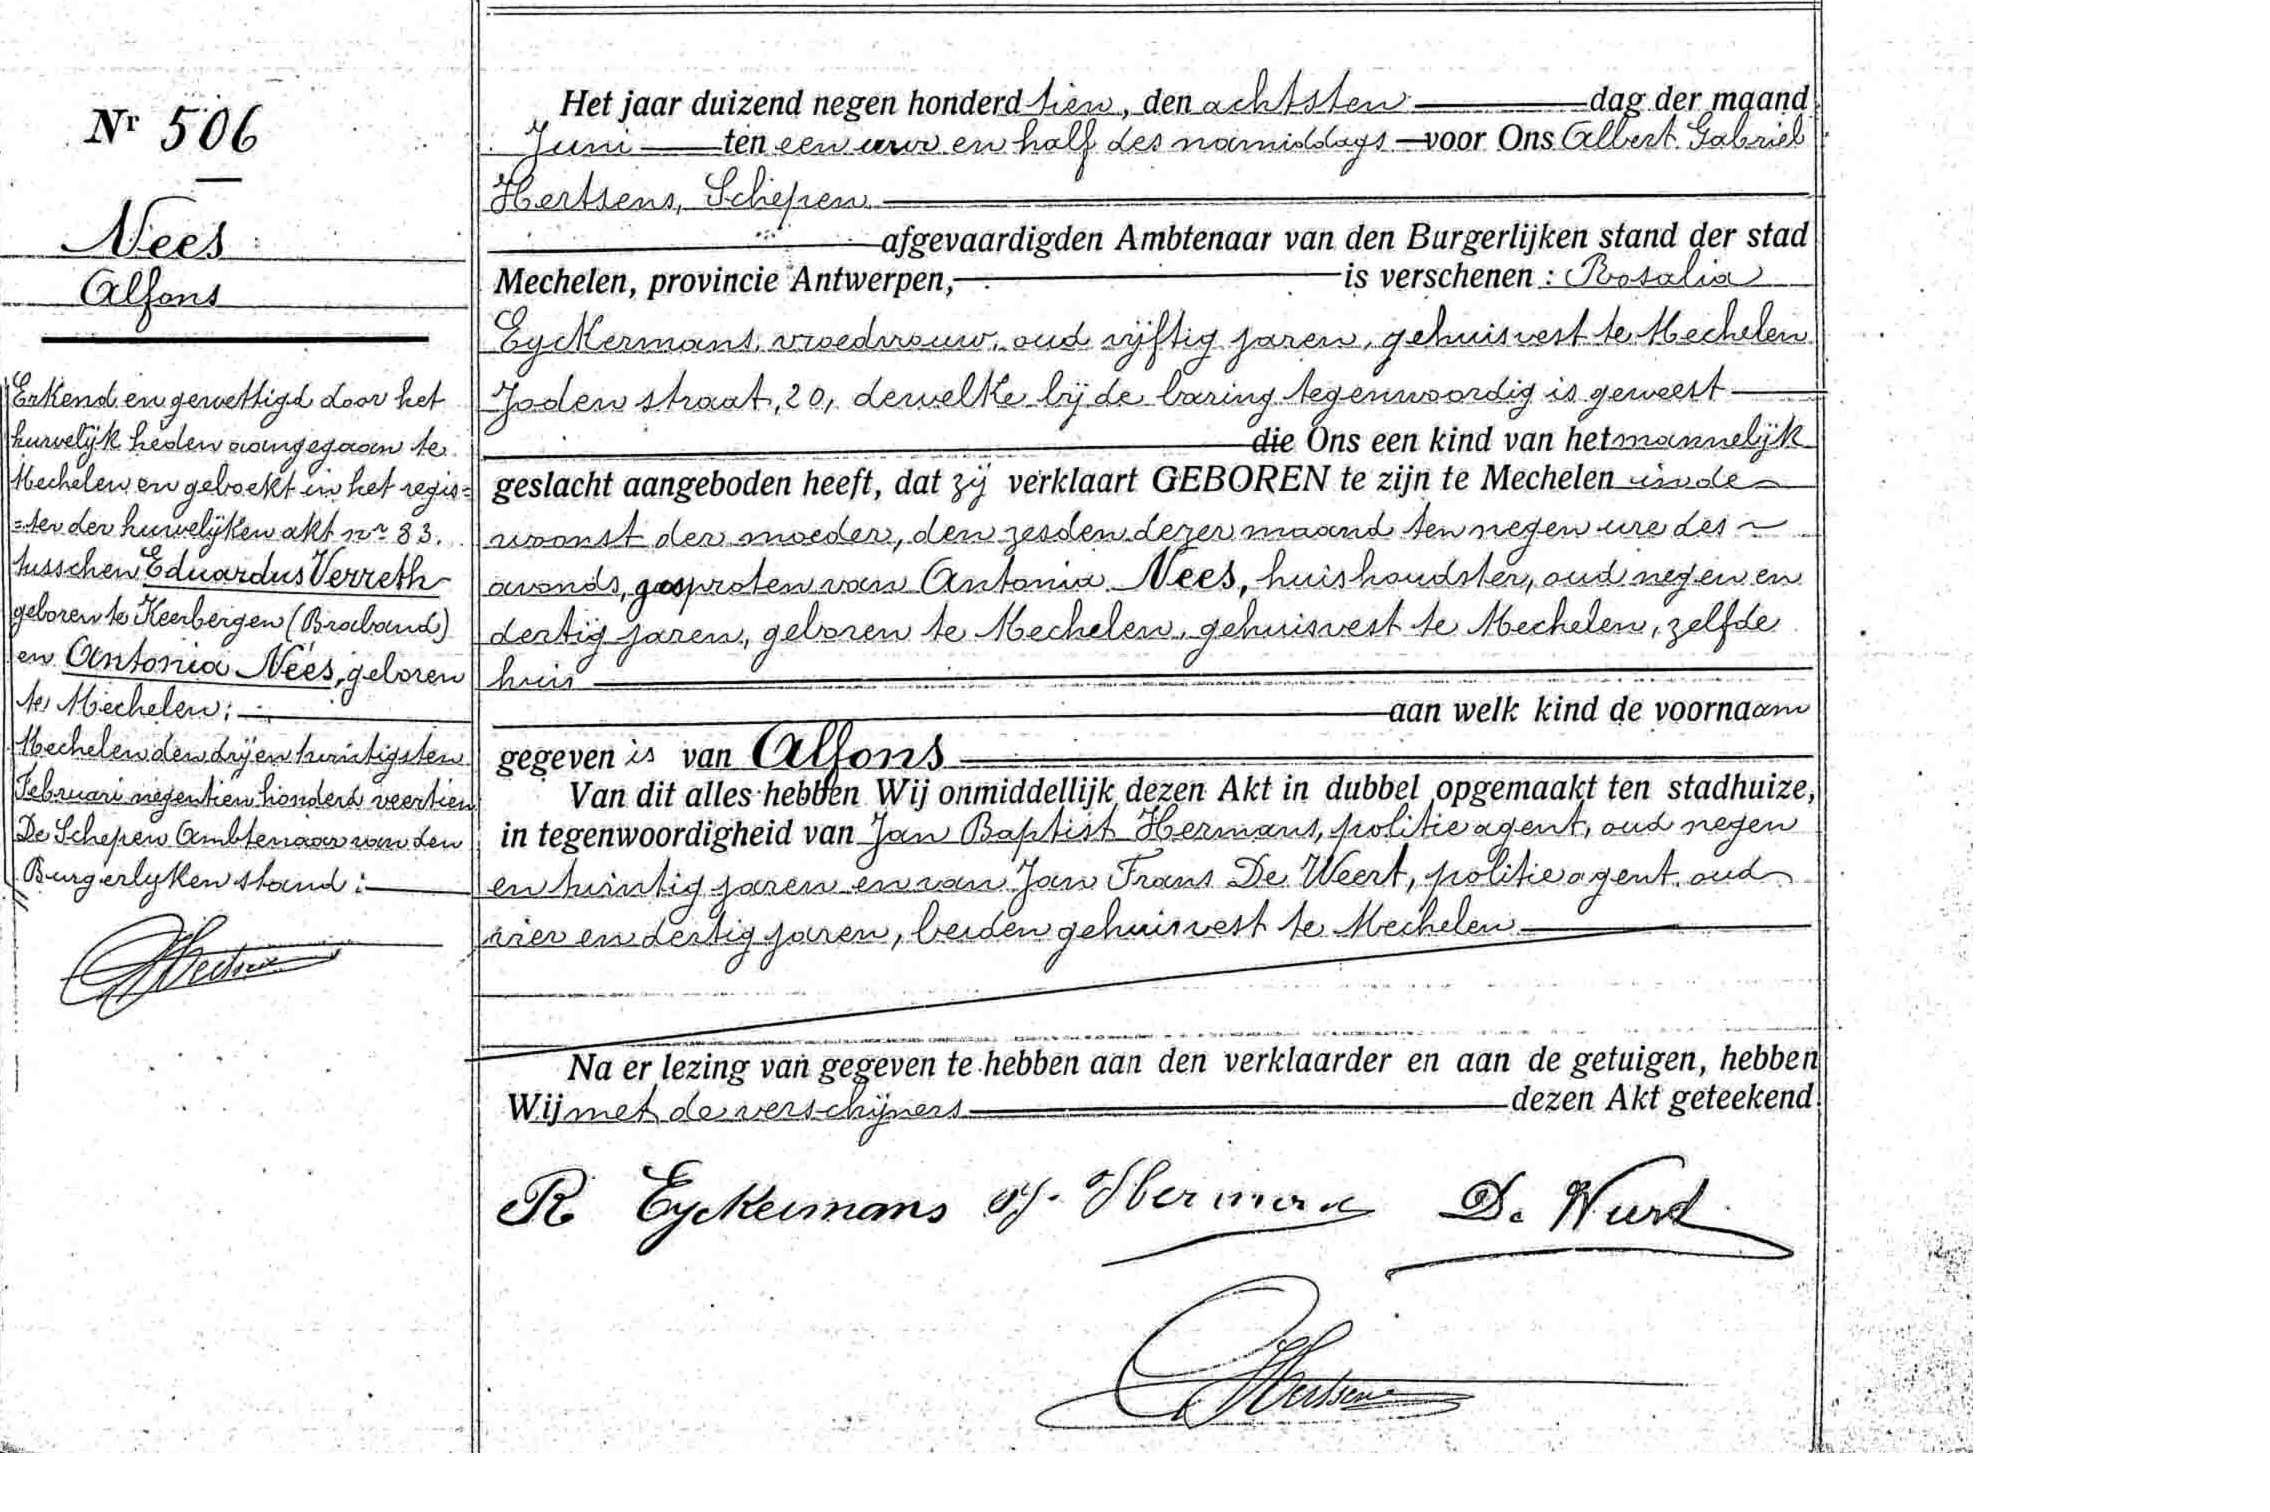 Nr 506
Nees
Alfons
Erkend en gewettigd door het
huwelijk heden aangegaan te
Mechelen en geboekt in het regis=
=ter der huwelijken akt nr 83.
tusschen Eduardus Verreth
geboren te Keerbergen (Braband)
en Antonia Nees, geboren
te Mechelen;
Mechelen den drij en twintigsten
Februari negentien honderd veertien
De Schepen Ambtenaar van den
Burgerlyken stand:
Hertsens
Het jaar duizend negen honderd tien, den achtsten dag der maand
Juni ten een ure en half des namiddags voor Ons Albert Gabriel
Hertsens, Schepen
afgevaardigden Ambtenaar van den Burgerlijken stand der stad
Mechelen, provincie Antwerpen, is verschenen : Rosalia
Eyckermans, vroedvrouw, oud vijftig jaren, gehuisvest te Mechelen
Joden straat, 20, dewelke bij de baring tegenwoordig is geweest
die Ons een kind van het mannelijk
geslacht aangeboden heeft, dat zij verklaart GEBOREN te zijn te Mechelen in de
woonst der moeder, den zesden dezer maand ten negen ure des
avonds, gesproten van Antonia Nees, huishoudster, oud negen en
dertig jaren, geboren te Mechelen, gehuisvest te Mechelen, zelfde
huis
aan welk kind de voornaam
gegeven is van Alfons
Van dit alles hebben Wij onmiddellijk dezen Akt in dubbel opgemaakt ten stadhuize,
in tegenwoordigheid van Jan Baptist Hermans, politieagent, oud negen
en twintig jaren en van Jan Frans De Weert, politieagent, oud
vier en dertig jaren, beiden gehuisvest te Mechelen
Na er lezing van gegeven te hebben aan den verklaarder en aan de getuigen, hebben
Wij met de verschijners dezen Akt geteekend.
R Eyckermans J. Hermans De Weerd
Hertsens